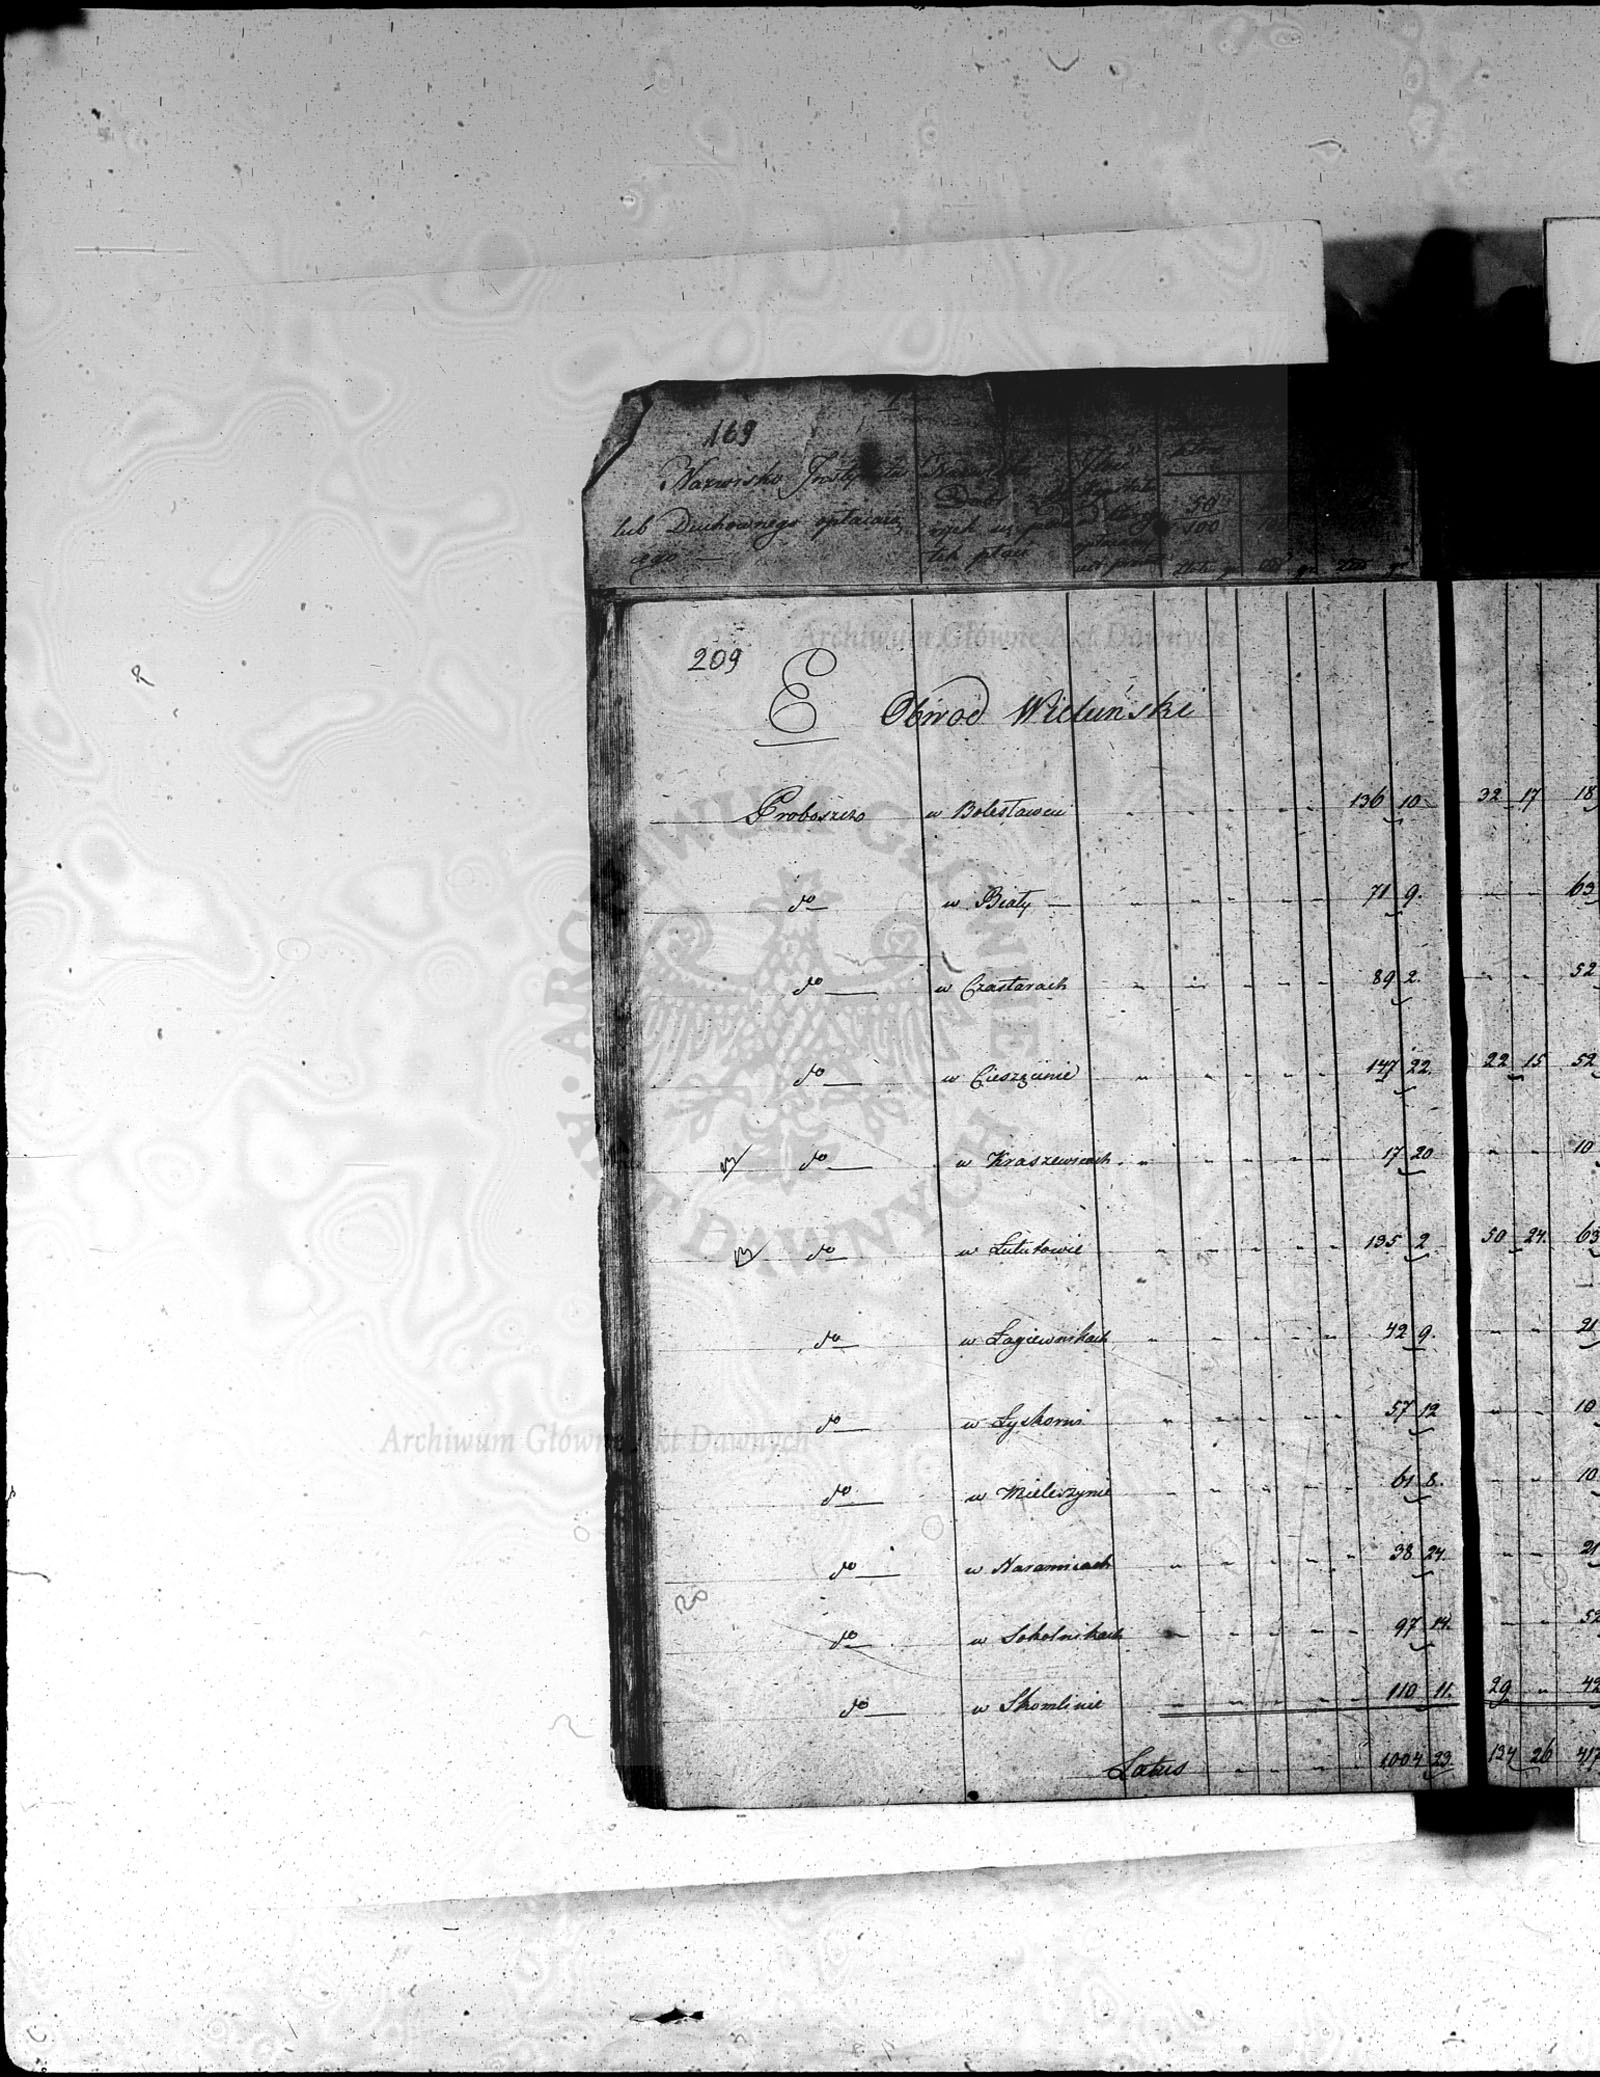 169
Nazwisko Instytutu
lub Duchownego opłacają
cego —
50
100
Złote gr. Złł gr. Złł gr.
209
E Obwod Wieluński
Proboszcz w Bolesławcu " " " " " 136 10 32 17 18
do w Biały — " " " " " 71 9. " " 63
do w Czastarach " " " " " 89 2. " " 52
do w Cieszęcinie " " " " " 147 22. 22 15 52
do w Kraszewicach " " " " " 17 20 " " 10
do w Lututowie " " " " " 135 2 50 24. 63
do w Łagiewnikach " " " " " 42 9. " " 21
do w Łyskorni " " " " " 57 12 " " 10
do w Mieleszynie " " " " " 61 8. " " 10
do w Naramnicach " " " " " 38 24. " " 21
do w Sokolnikach " " " " " 97 14. " " 52
do w Skomlinie " " " " " 110 11. 29 " 42
Latus " " " " 1004 23. 134 26 417
Archiwum Główne Akt Dawnych
ARCHIWUM GŁÓWNE AKT DAWNYCH
Archiwum Główne Akt Dawnych